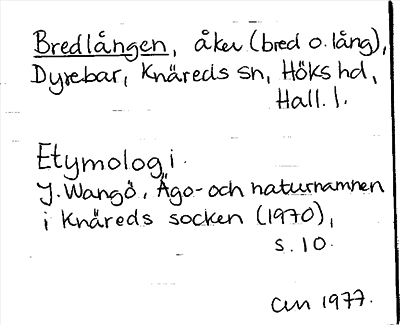 Bredlången, åker (bred o. lång),
Dyrebar, Knäreds sn, Höks hd,
Hall. l.
Etymologi.
J. Wangö, Ägo- och naturnamnen
i Knäreds socken (1970),
s. 10.
1977.